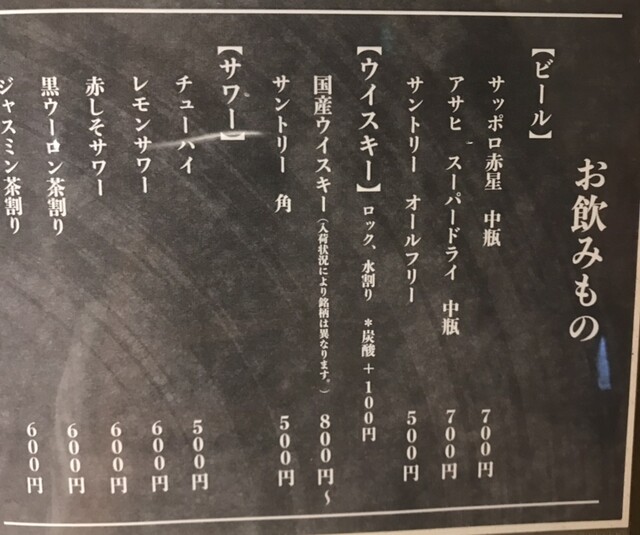 お飲みもの
【ビール】
サッポロ赤星 中瓶 700円
アサヒ スーパードライ 中瓶 700円
サントリー オールフリー 500円
【ウイスキー】 ロック、水割り *炭酸+100円
国産ウイスキー(入荷状況により銘柄は異なります。) 800円~
サントリー 角 500円
【サワー】
チューハイ 500円
レモンサワー 600円
赤しそサワー 600円
黒ウーロン茶割り 600円
ジャスミン茶割り 600円